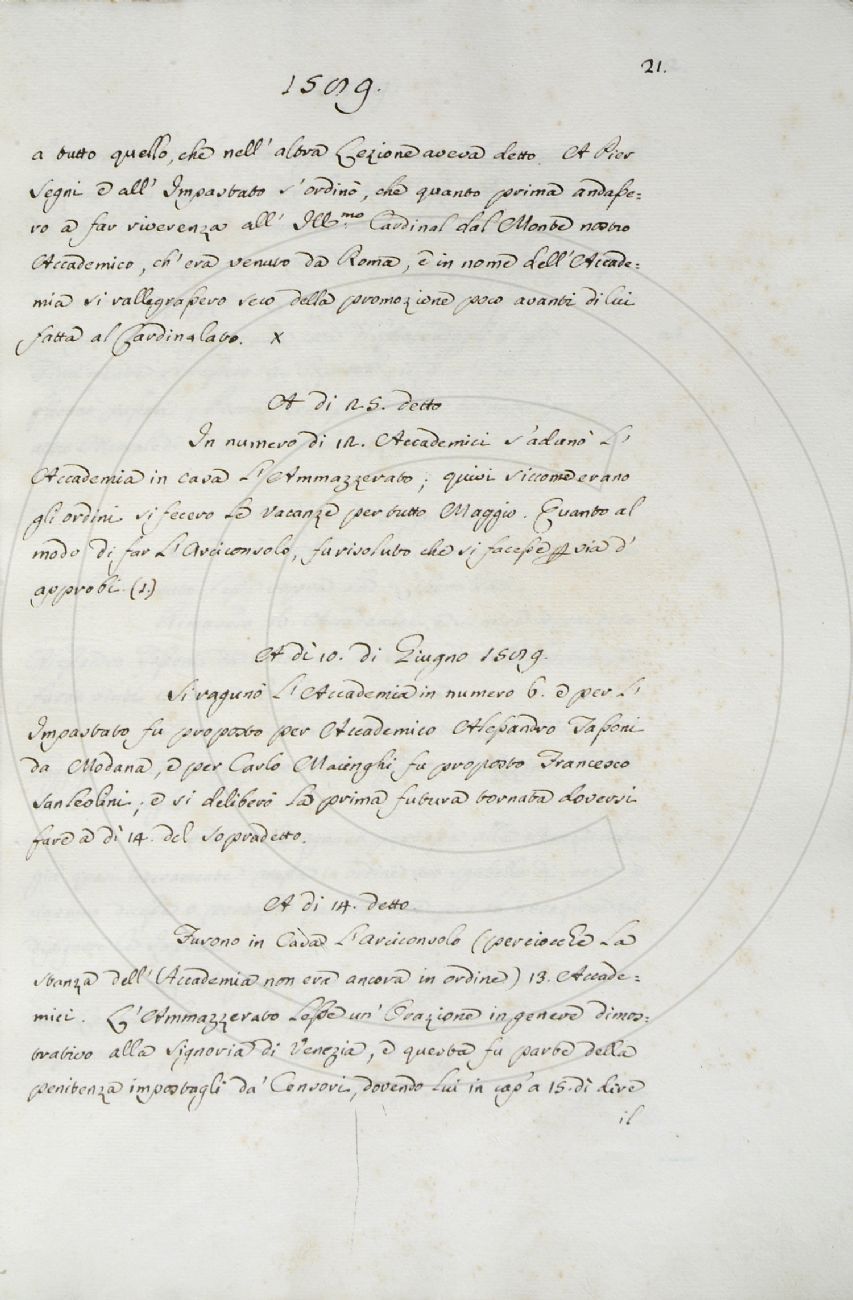 21.
1589.
a tutto quello, che nell' altra Lezione aveva detto. A Pier
Segni e all' Impastato s' ordinò, che quanto prima andasse=
ro a far riverenza all' Ill.mo Cardinal dal Monte nostro
Accademico, ch' era venuto da Roma, e in nome dell' Accade=
mia si rallegrassero seco della promozione poco avanti di lui
fatta al Cardinalato. x
A di 25. detto
In numero di 12. Accademici s' adunò l'
Accademia in casa l' Ammazzerato; quivi siccome erano
gli ordini si fecero le vacanze per tutto Maggio. Quanto al
modo di far l' Arciconsolo, fu risoluto che si facesse p via d'
approbi. (1.)
A di 10. di Giugno 1589.
Si ragunò l' Accademia in numero 6. e per l'
Impastato fu proposto per Accademico Alessandro Tassoni
da Modana, e per Carlo Macinghi fu proposto Francesco
Sanleolini; e si deliberò la prima futura tornata doversi
fare a dì 14. del sopradetto.
A di 14. detto.
Furono in Casa l' Arciconsolo (perciocchè la
stanza dell' Accademia non era ancora in ordine) 13. Accade=
mici. L' Ammazzerato lesse un' Orazione in genere dimos=
trativo alla Signoria di Venezia, e questa fu parte della
penitenza impostagli da' Censori, dovendo lui in cap' a 15. dì dire
il